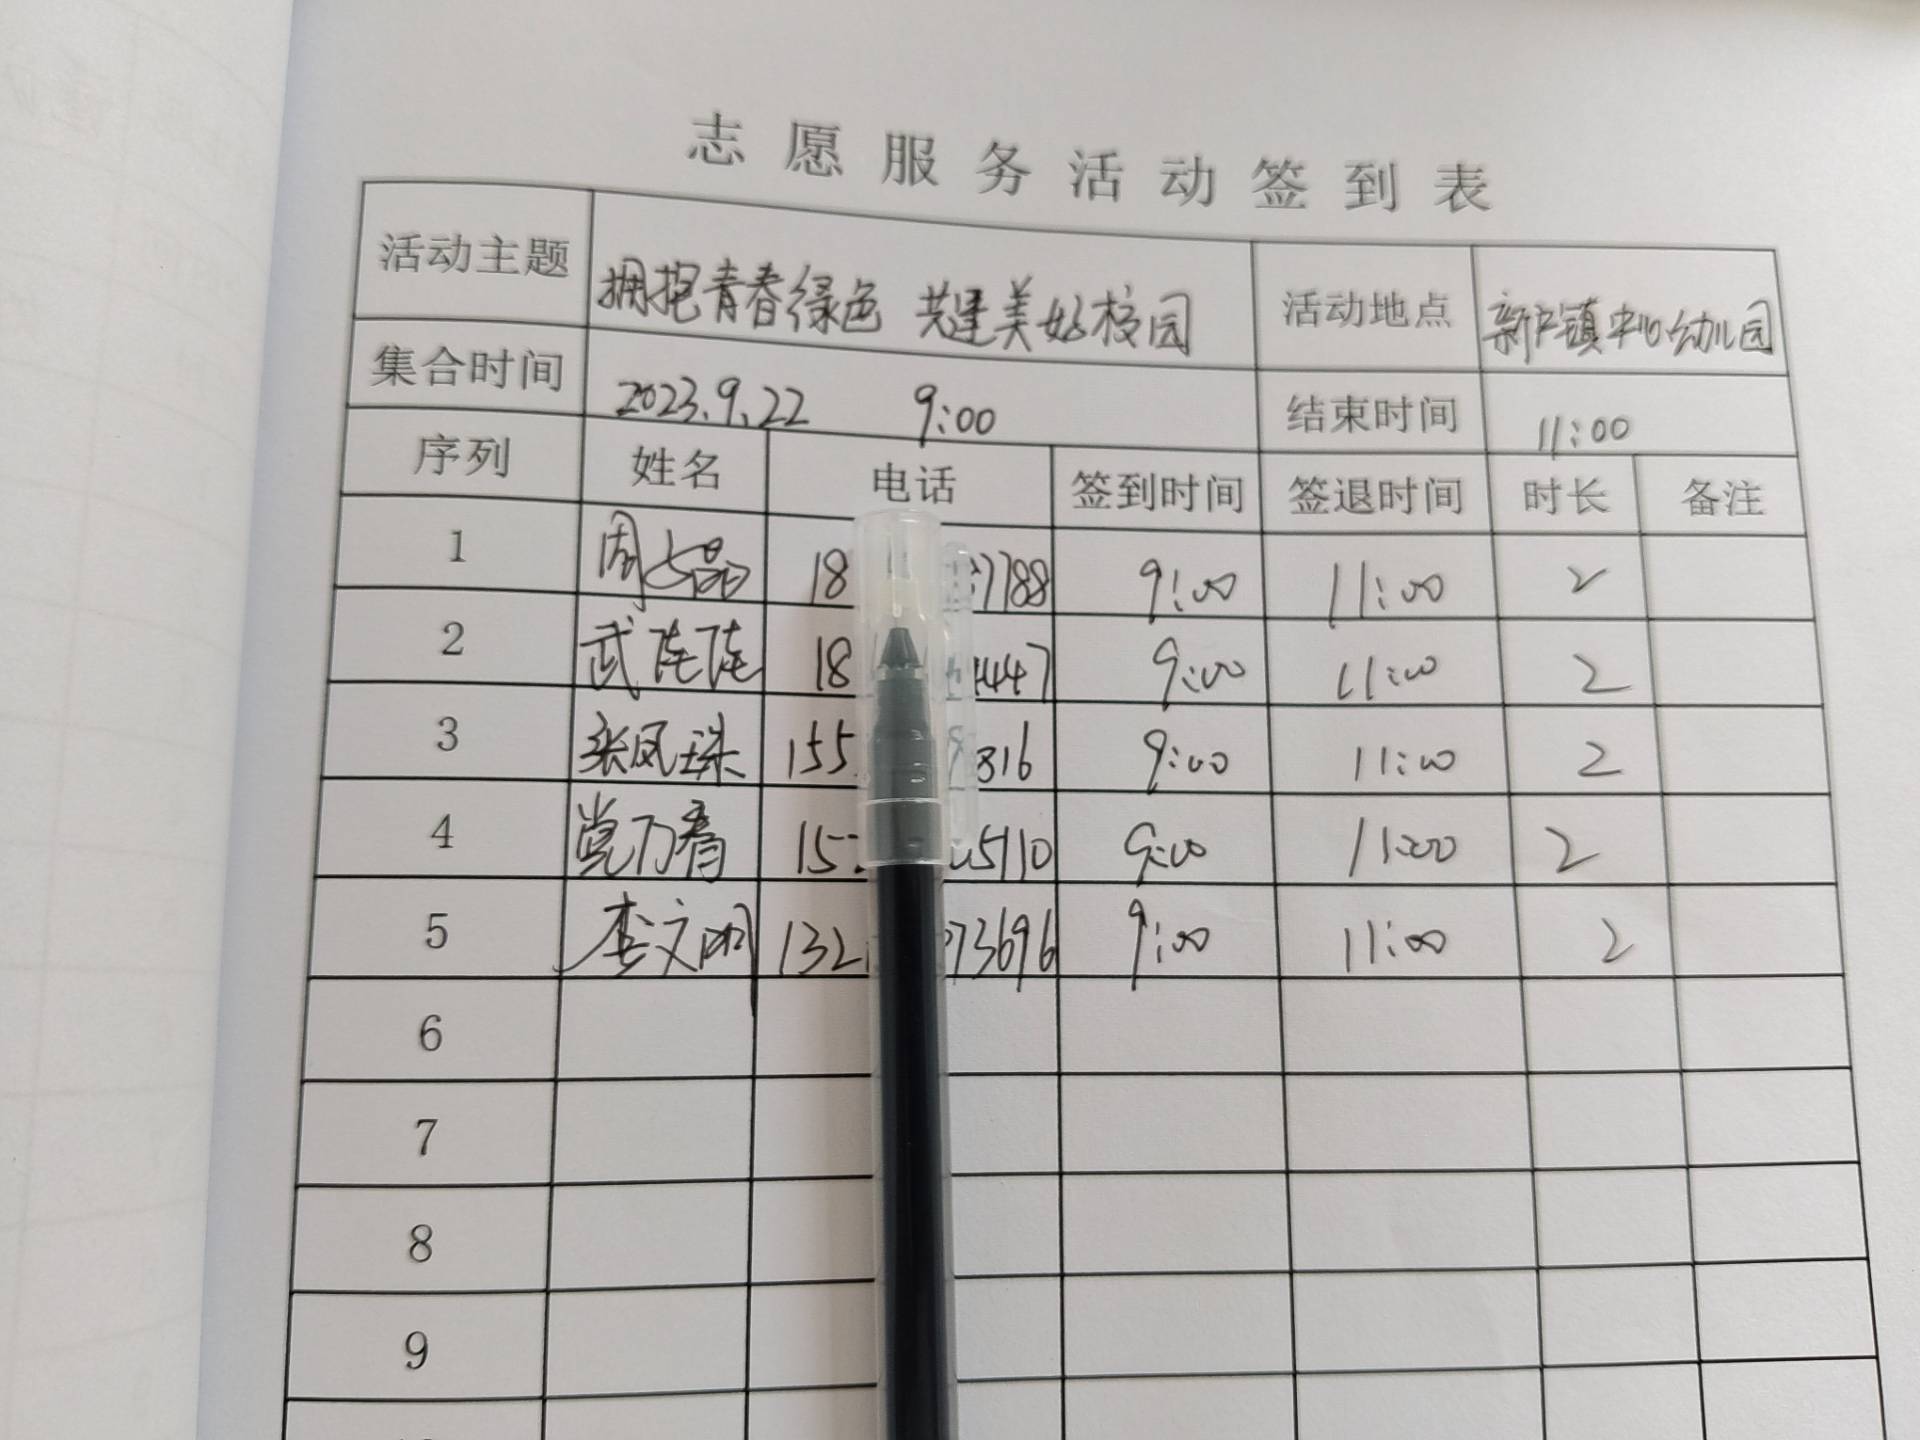 志愿服务活动签到表
活动主题 拥抱青春绿色 共建美好校园 活动地点 新户镇中心幼儿园
集合时间 2023.9.22 9:00 结束时间 11:00
序列 姓名 电话 签到时间 签退时间 时长 备注
1 周 晶 18 7788 9:00 11:00 2
2 武陆陆 18 4447 9:00 11:00 2
3 张凤珠 155 9816 9:00 11:00 2
4 党乃春 15 5110 9:00 11:00 2
5 李文 132 73696 9:00 11:00 2
6
7
8
9